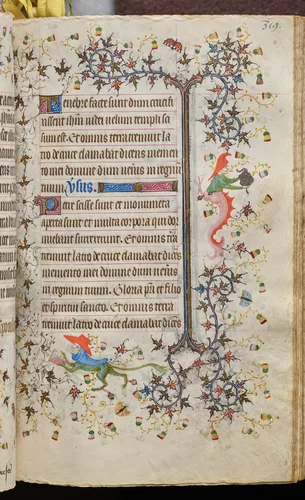 319.
Tenebre facte sunt dum crucifi
xissent ihm iudei velum templi sas
sum est. Et omnis terra tremuit la
tro de cruce clamabat dicens memen
to mei domine dum veneris in regnum
tuum. Vsus.
Petre scisse sunt et monumeta
aperta sunt et multa corpora qui dor
miebant surrexerunt. Et omnis tra
tremuit latro de cruce clamabat dices
memento mei domine dum veneris
in regnum tuum. Gloria pri et filio
et spiritui sancto. Et omnis terra
tremuit latro de cruce clamabat dices